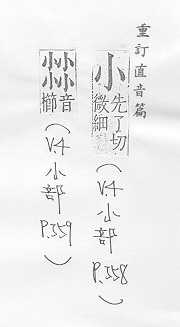 重訂直音篇
小 先了切 微細
(V.4 小部 P.358)
音櫛
(V.4 小部 P.359)